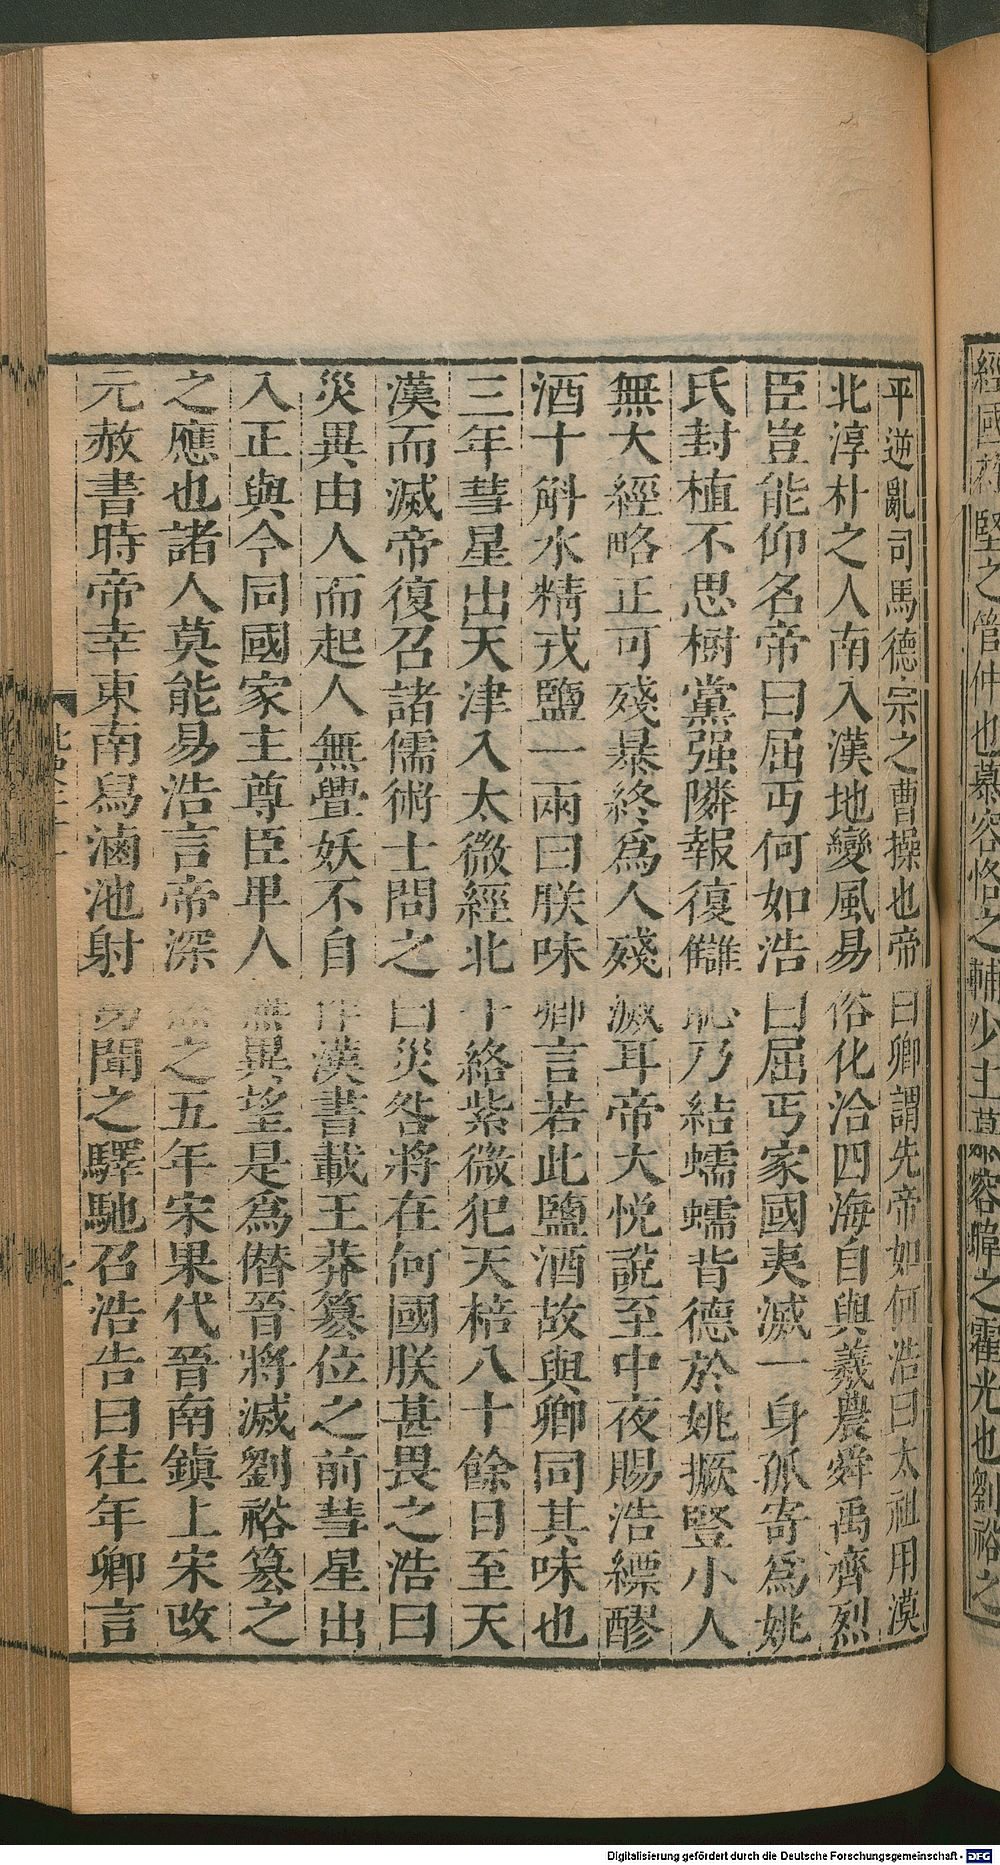 經國苻堅之管仲也慕容恪之輔少主慕容暐之霍光也劉裕之
平逆亂司馬德宗之曹操也帝曰卿謂先帝如何浩曰太祖用漠
北淳朴之人南入漢地變風易俗化洽四海自與羲農舜禹齊烈
臣豈能仰名帝曰屈丐何如浩曰屈丐家國夷滅一身孤寄爲姚
氏封植不思樹黨强隣報復讎恥乃結蠕蠕背德於姚撅竪小人
無大經略正可殘暴終爲人殘滅耳帝大悅說至中夜賜浩縹醪
酒十斛水精戎鹽一兩曰朕味卿言若此鹽酒故與卿同其味也
三年彗星出天津入太微經北斗絡紫微犯天棓八十餘日至天
漢而滅帝復召諸儒術士問之曰災咎將在何國朕甚畏之浩曰
災異由人而起人無舋妖不自作漢書載王莽篡位之前彗星出
入正與今同國家主尊臣卑人無異望是爲僭晉將滅劉裕篡之
之應也諸人莫能易浩言帝深然之五年宋果代晉南鎮上宋改
元赦書時帝幸東南舄滷池射鳥聞之驛馳召浩告曰往年卿言
Digitalisierung gefördert durch die Deutsche Forschungsgemeinschaft - DFG